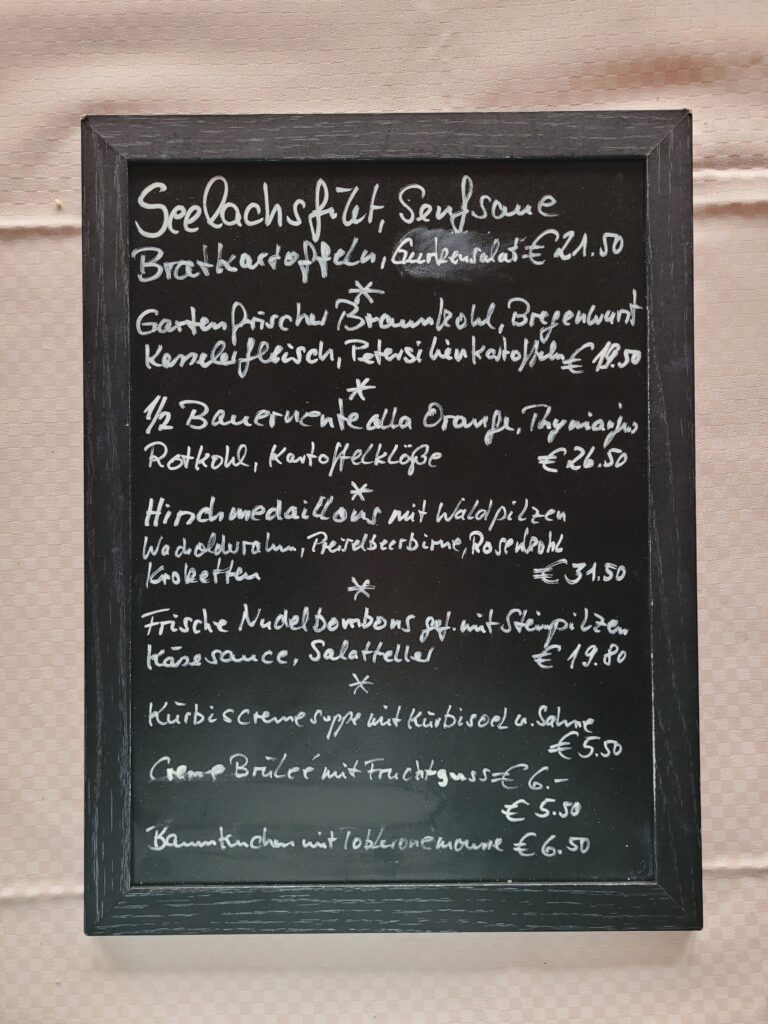 Seelachsfilet, Senfsauce
Bratkartoffeln, Gurkensalat € 21.50
*
Gartenfrischer Braunkohl, Bregenwurst
Kasselerfleisch, Petersilienkartoffeln € 19.50
*
1/2 Bauernente alla Orange, Thymianjus
Rotkohl, Kartoffelklöße € 26.50
*
Hirschmedaillons mit Waldpilzen
Wacholderrahm, Preiselbeerbirne, Rosenkohl
Kroketten € 31.50
*
Frische Nudelbombons gef. mit Steinpilzen
Käsesauce, Salatteller € 19.80
*
Kürbiscremesuppe mit Kürbisoel u. Sahne
€ 5.50
Creme Brüleé mit Fruchtguss € 6.-
€ 5.50
Baumkuchen mit Tobleronemousse € 6.50